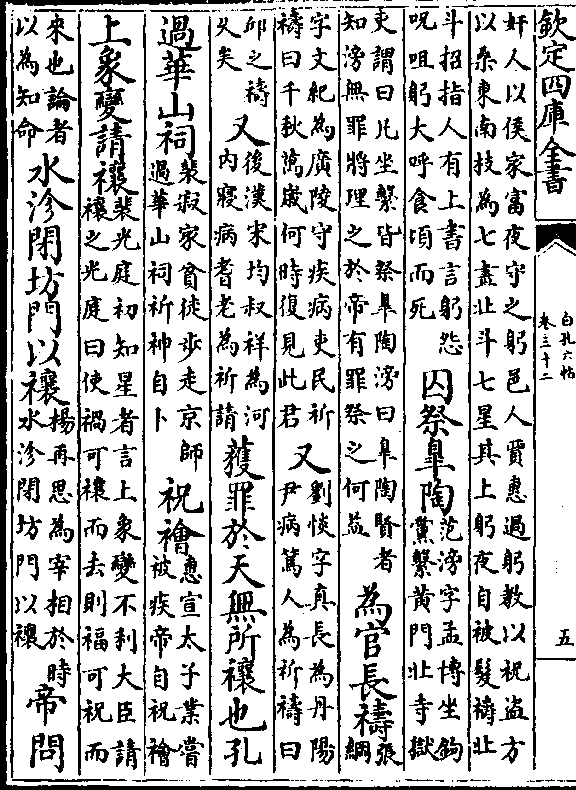 欽定四庫全書
白孔六帖
卷三十二
五
奸人以侯家富夜守之躬邑人賈惠過躬教以祝盜方
以桑東南技為七畫北斗七星其上躬夜自被髮禱北
斗招指人有上書言躬怨
呪咀躬大呼食頃而死
囚祭臯陶
范滂字孟博坐鉤
黨繫黃門北寺獄
吏謂曰凡坐繫皆祭臯陶滂曰臯陶賢者
知滂無罪將理之於帝有罪祭之何益
為官長禱
張
綱
字文紀為廣陵守疾病吏民祈
禱曰千秋萬歲何時復見此君
又
劉惔字真長為丹陽
尹病篤人為祈禱曰
邱之禱
乆矣
又
後漢宋均叔祥為河
內寢病耆老為祈請
獲罪於天無所禳也孔
過華山祠
裴寂家貧徒步走京師
過華山祠祈神自卜
祝禬
惠宣太子業嘗
被疾帝自祝禬
上象變請禳
裴光庭初知星者言上象變不利大臣請
禳之光庭曰使禍可禳而去則福可祝而
來也論者
以為知命
水沴閉坊門以禳
楊再思為宰相於時
水沴閉坊門以禳
帝問